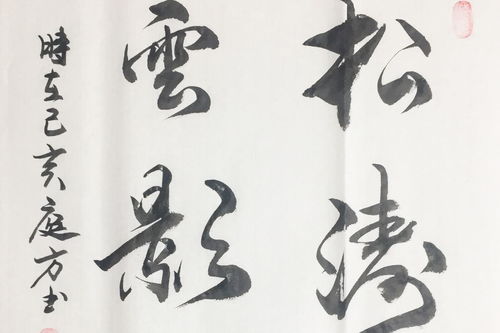 松濤
雲影
時在己亥庭方书